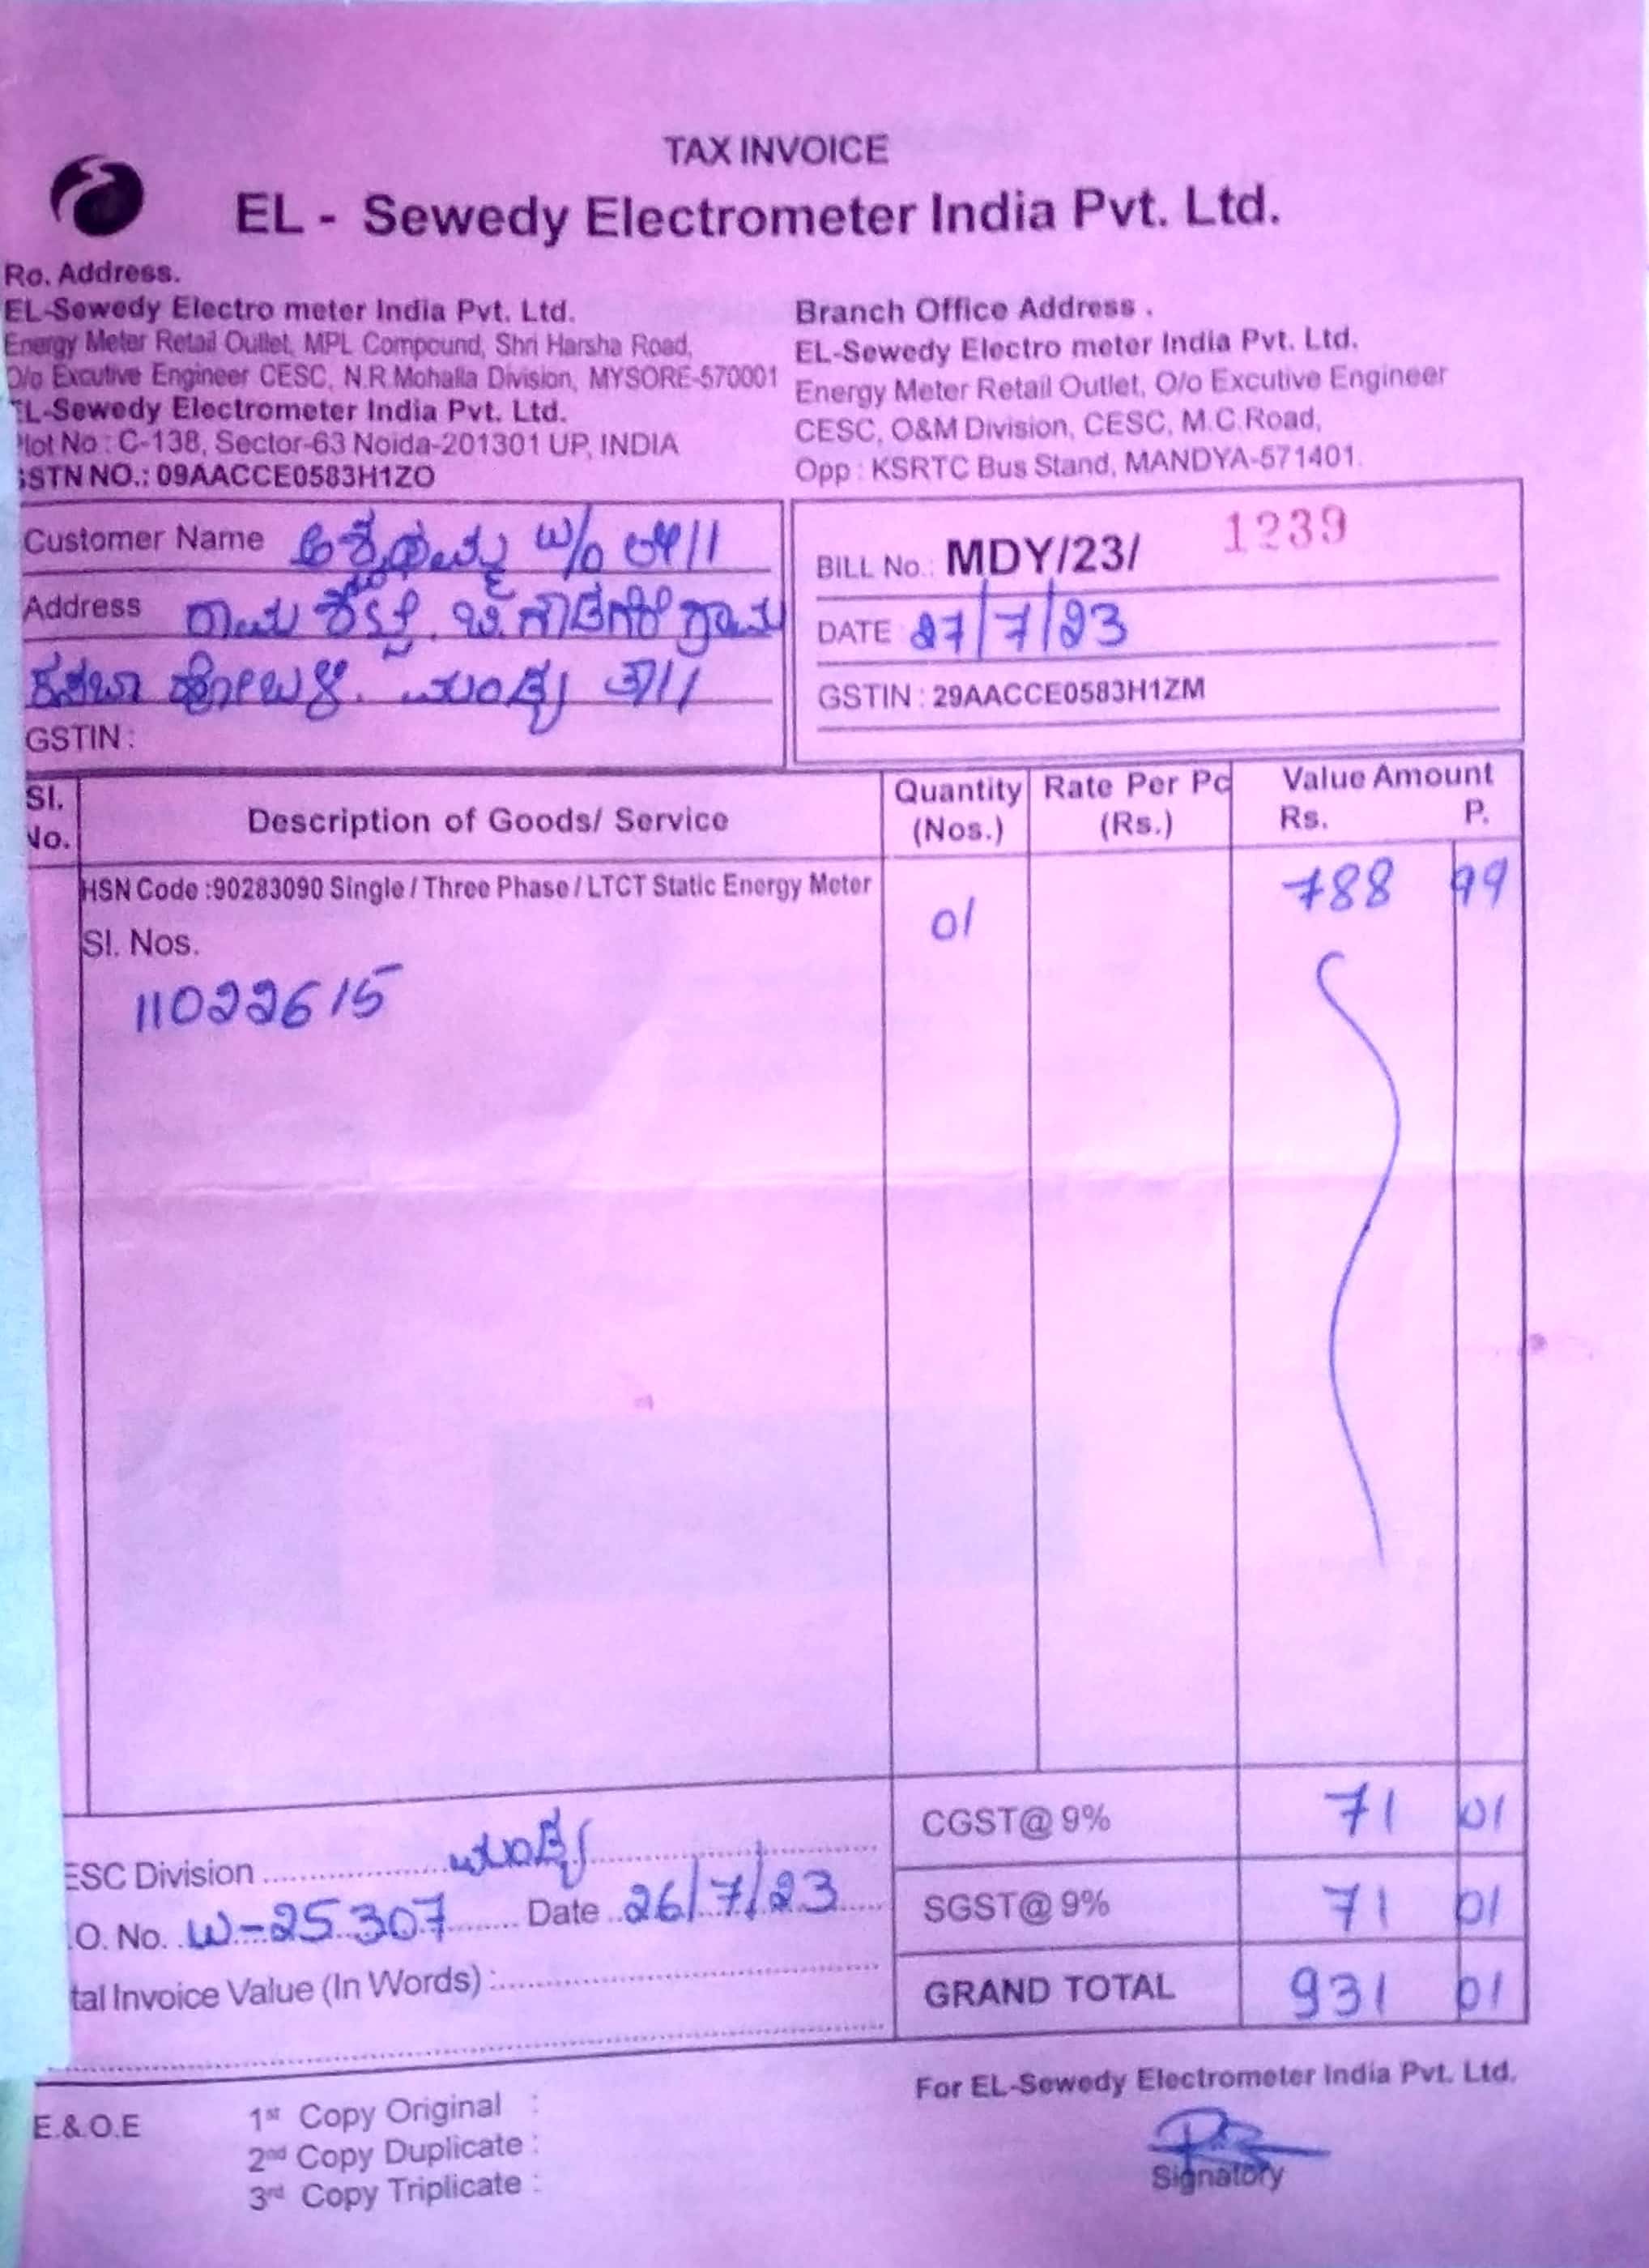 TAX INVOICE
EL - Sewedy Electrometer India Pvt. Ltd.
Ro. Address.
EL-Sewedy Electro meter India Pvt. Ltd.
Energy Meter Retail Outlet, MPL Compound, Shri Harsha Road,
O/o Excutive Engineer CESC, N.R.Mohalla Division, MYSORE-570001
EL-Sewedy Electrometer India Pvt. Ltd.
Plot No : C-138, Sector-63 Noida-201301 UP, INDIA
GSTN NO.: 09AACCE0583H1ZO
Branch Office Address .
EL-Sewedy Electro meter India Pvt. Ltd.
Energy Meter Retail Outlet, O/o Excutive Engineer
CESC, O&M Division, CESC, M.C.Road,
Opp : KSRTC Bus Stand, MANDYA-571401.
Customer Name w/o
Address
ಮಂಡ್ಯ ತಾ||
GSTIN :
BILL No.: MDY/23/ 1239
DATE 27/7/23
GSTIN : 29AACCE0583H1ZM
Sl. No. Description of Goods/ Service Quantity (Nos.) Rate Per Pc (Rs.) Value Amount Rs. P.
HSN Code :90283090 Single / Three Phase / LTCT Static Energy Meter 01 788 99
Sl. Nos.
11022615
CGST@ 9% 71 01
SGST@ 9% 71 01
GRAND TOTAL 931 01
ESC Division ಮಂಡ್ಯ
.O. No. W-25307 Date 26/7/23
tal Invoice Value (In Words) :
For EL-Sewedy Electrometer India Pvt. Ltd.
E.&.O.E
1st Copy Original :
2nd Copy Duplicate :
3rd Copy Triplicate :
Signatory